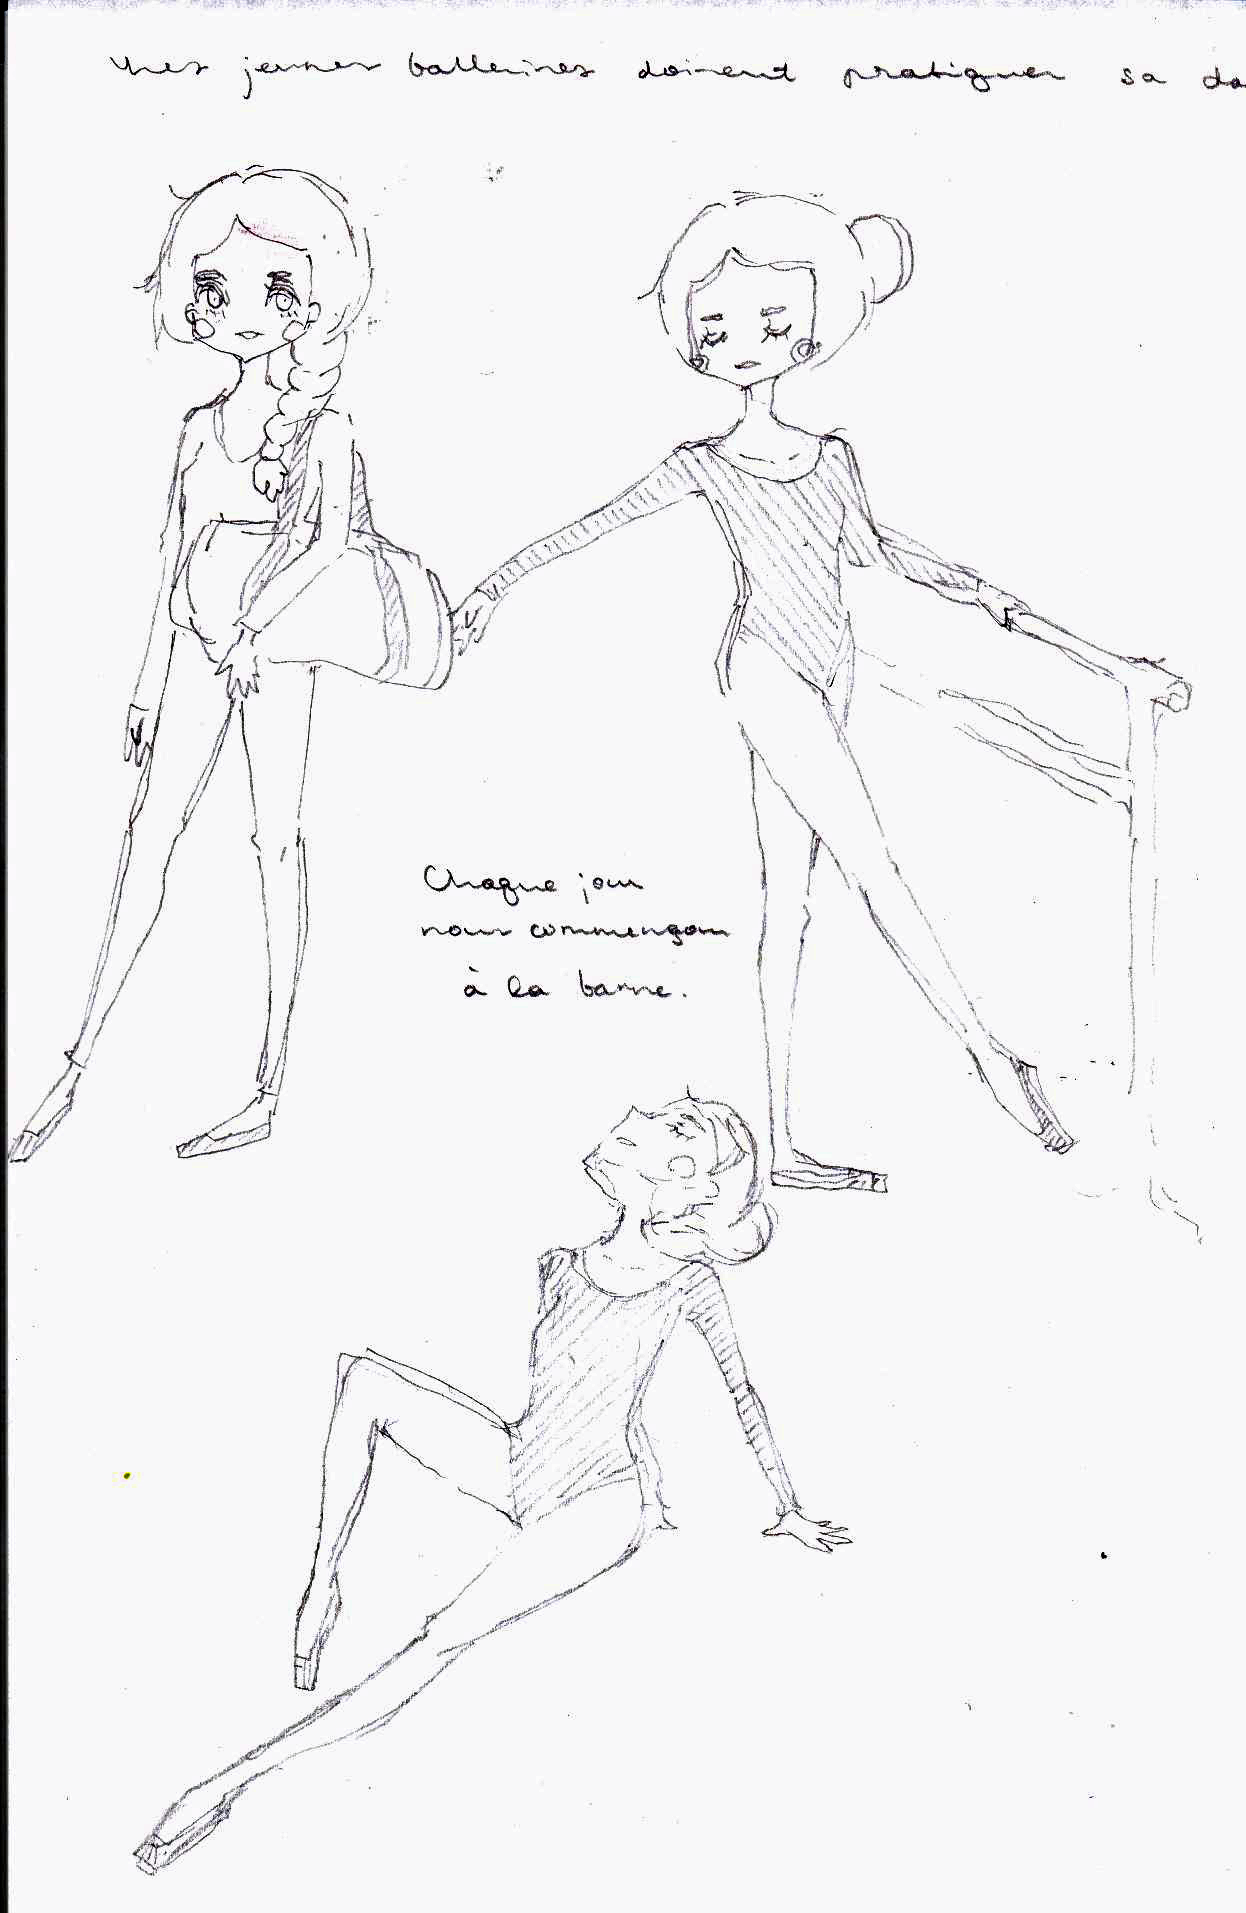 jeunes ballerines doivent pratiquer sa
Chaque jour
nous commençons
à la barre.